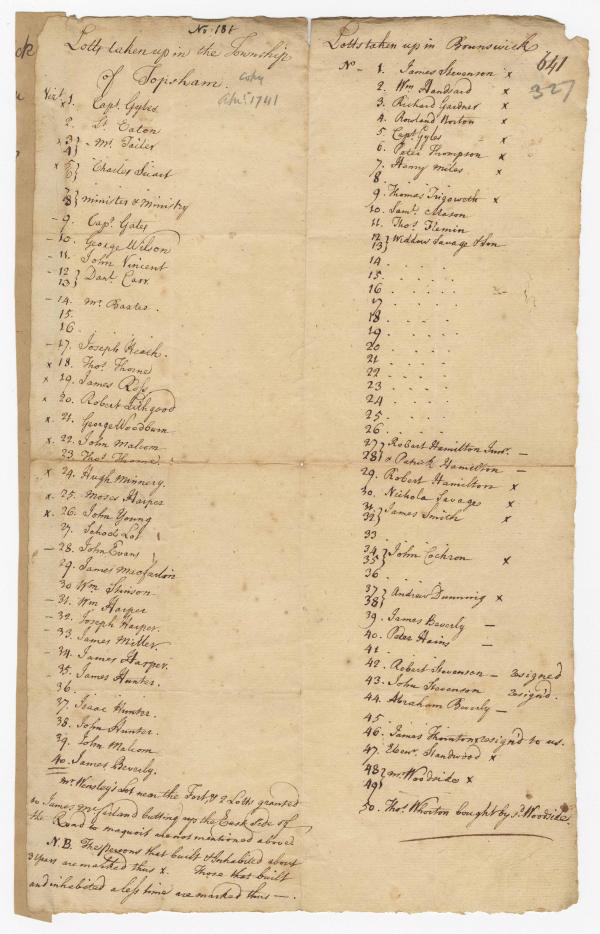 No. 181
Lotts taken up in the Township
of Topsham.
Copy
1741
x 1. Capt. Gyles
2. Lt. Eaton
x 3} Mr. Tailer
4}
x 5} Charles Stuart
6}
7} minister & Ministry
8}
- 9. Capt. Gates
- 10. George Wilson
- 11. John Vincent
- 12} Danl. Carr.
13}
- 14. Mr. Baxter.
15.
16.
- 17. Joseph Heath.
x 18. Thos. Thorne
x 19. James Ross
x 20. Robert Lithgood
x 21. George Woodburn
x 22. John Malcom
23. Thos. Thorne.
x 24. Hugh Minnery.
x 25. Moses Harper
x 26. John Young
27. School Lot
- 28. John Evans
29. James Mcfarlin
- 30. Wm. Stinson
- 31. Wm. Harper
- 32. Joseph Harper.
- 33. James Miller.
- 34. James Harper.
- 35. James Hunter.
36.
37. Isaac Hunter.
38. John Hunter.
39. John Malcom
40. James Beverly.
Mr. Wensley's Lot near the Fort, & 2 Lotts granted
to James Mcfarland butting upo the East side of
the Road to maquoit are not mentioned above
N.B. The persons that built & Inhabited about
3 Years are marked thus x. Those that built
and inhabited a less time are marked thus —.
Lotts taken up in Brunswick
641
327
No - 1. James Stevenson x
2. Wm. Handsard x
3. Richard Gardner x
4. Rowland Horton x
5. Capt. Gyles x
6. Peter Thompson x
7. Henry Miles x
8.
9. Thomas Trigoweth x
10. Saml. Mason
11. Thos. Flemin
12} Widdow Savage & Son
13}
14.
15.
16.
17.
18.
19.
20.
21.
22.
23.
24.
25.
26.
27} Robert Hamilton Junr. —
28} & Patrick Hamilton —
29. Robert Hamilton x
30. Nichola Savages x
31} James Smith x
32}
33.
34} John Cochron x
35}
36.
37} Andrew Dunning x
38}
39. James Beverly —
40. Peter Hains —
41.
42. Robert Stevenson — resigned
43. John Stevenson resignd.
44. Abraham Beverly —
45.
46. James Thornton resignd to us.
47. Ebenr. Standwood x
48} Mr. Woodside x
49}
50. Thos. Whorton bought by sd. Woodside